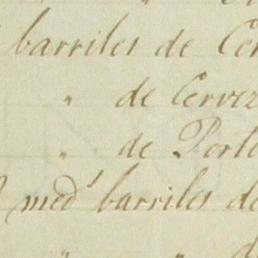 barriles de Cer
" de Cervez
" de Porte
med.s barriles de
" " de